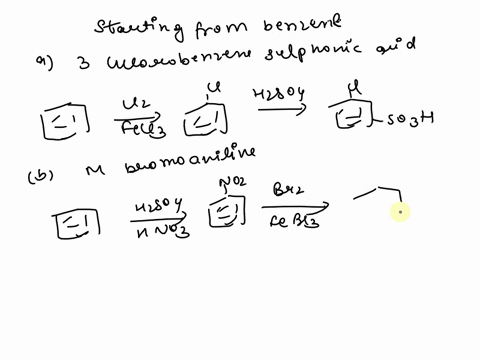 Starting from benzene
a) 3 chlorobenzene sulphonic acid
Cl2
FeCl3
Cl
H2SO4
Cl
SO3H
(b) M bromoaniline
H2SO4
HNO3
NO2
Br2
FeBr3